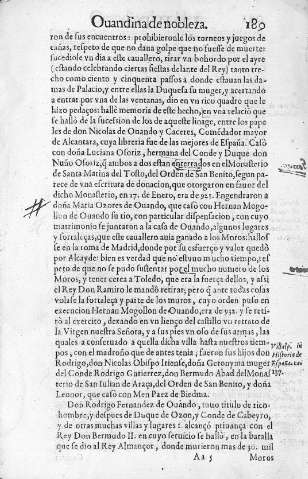 Ouandina de nobleza. 180
ron de sus encuentros: prohibieronle los torneos y juegos de
cañas, respeto de que no daua golpe que no fuesse de muerte:
sucediole vn dia a este cauallero, tirar vn bohordo por el ayre
(estando celebrando ciertas fiestas delante del Rey) tanto tre-
cho como ciento y cinquenta passos a donde estauan las da-
mas de Palacio, y entre ellas la Duquesa su muger, y acertando
a entrar por vna de las ventanas, dio en vn rico quadro que le
hizo pedaços: hallè memoria de este hecho, en vna relaciō que
se hallò de la sucesion de los de aqueste linage, entre los pape
les de don Nicolas de Ouando y Caceres, Comēdador mayor
de Alcantara, cuya libreria fue de las mejores de España. Casò
con doña Luciana Osoriz, hermana del Conde y Duque don
Nuño Osoriz, q̃ ambos a dos estan enterrados en el Monesterio
de Santa Marina del Tosto, del Orden de San Benito, segun pa-
rece de vna escritura de donacion, que otorgaron en fauor del
dicho Monesterio, en 17. de Enero, era de 951. Engendraron a
doña Maria Osores de Ouando, que casò con Hernan Mogo-
llon de Ouando su tio, con particular dispensacion, con cuyo
matrimonio se juntaron a la casa de Ouando, algunos lugares
y fortalezas, que este cauallero auia ganado a los Moros: hallos
se en la toma de Madrid, donde por su esfuerço y valor quedò
por Alcayde: bien es verdad que no estuuo mucho tiempo, res
peto de que no se pudo sustentar por el mucho numero de los
Moros, y tener cerca a Toledo, que era la fuerça dellos, y assi
el Rey Don Ramiro le mandò retirar; pero q̃ ante todas cosas
volasse la fortaleza y parte de los muros, cuyo orden puso en
execucion Hernan Mogollon de Ouando, era de 932. y se reti-
rò al exercito, dexando en vn lienço del castillo vn retrato de
la Virgen nuestra Señora, y a sus pies vn olo de sus armas, las
quales a conseruado a quella dicha villa hasta nuestros tiem-
pos, con el madroño que de antes tenia, fueron sus hijos don
Rodrigo, don Nicolas Obispo Iriense, doña Geronyma muger
del Conde Rodrigo Gutierrez, don Bermudo Abad del Monas
terio de San Iulian de Araça, del Orden de San Benito, y doña
Leonor, que casò con Men Paez de Biedma.
Don Rodrigo Fernandez de Ouando, tuuo titulo de rico-
hombre, y despues de Duque de Ozon, y Conde de Cabeyro,
y de otras muchas villas y lugares: alcançò priuança con el
Rey Don Bermudo II. en cuyo seruicio se hallò, en la batalla
que se dio al Rey Almançor, donde murieron mas de 30. mil
Aa 5 Moros